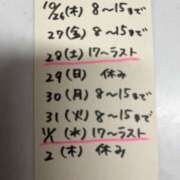 10/26(木) 8〜15まで
27(金) 8〜15まで
28(土) 17〜ラスト
29(日) 休み
30(月) 8〜15まで
31(火) 8〜15まで
11/1(水) 17〜ラスト
2(木) 休み